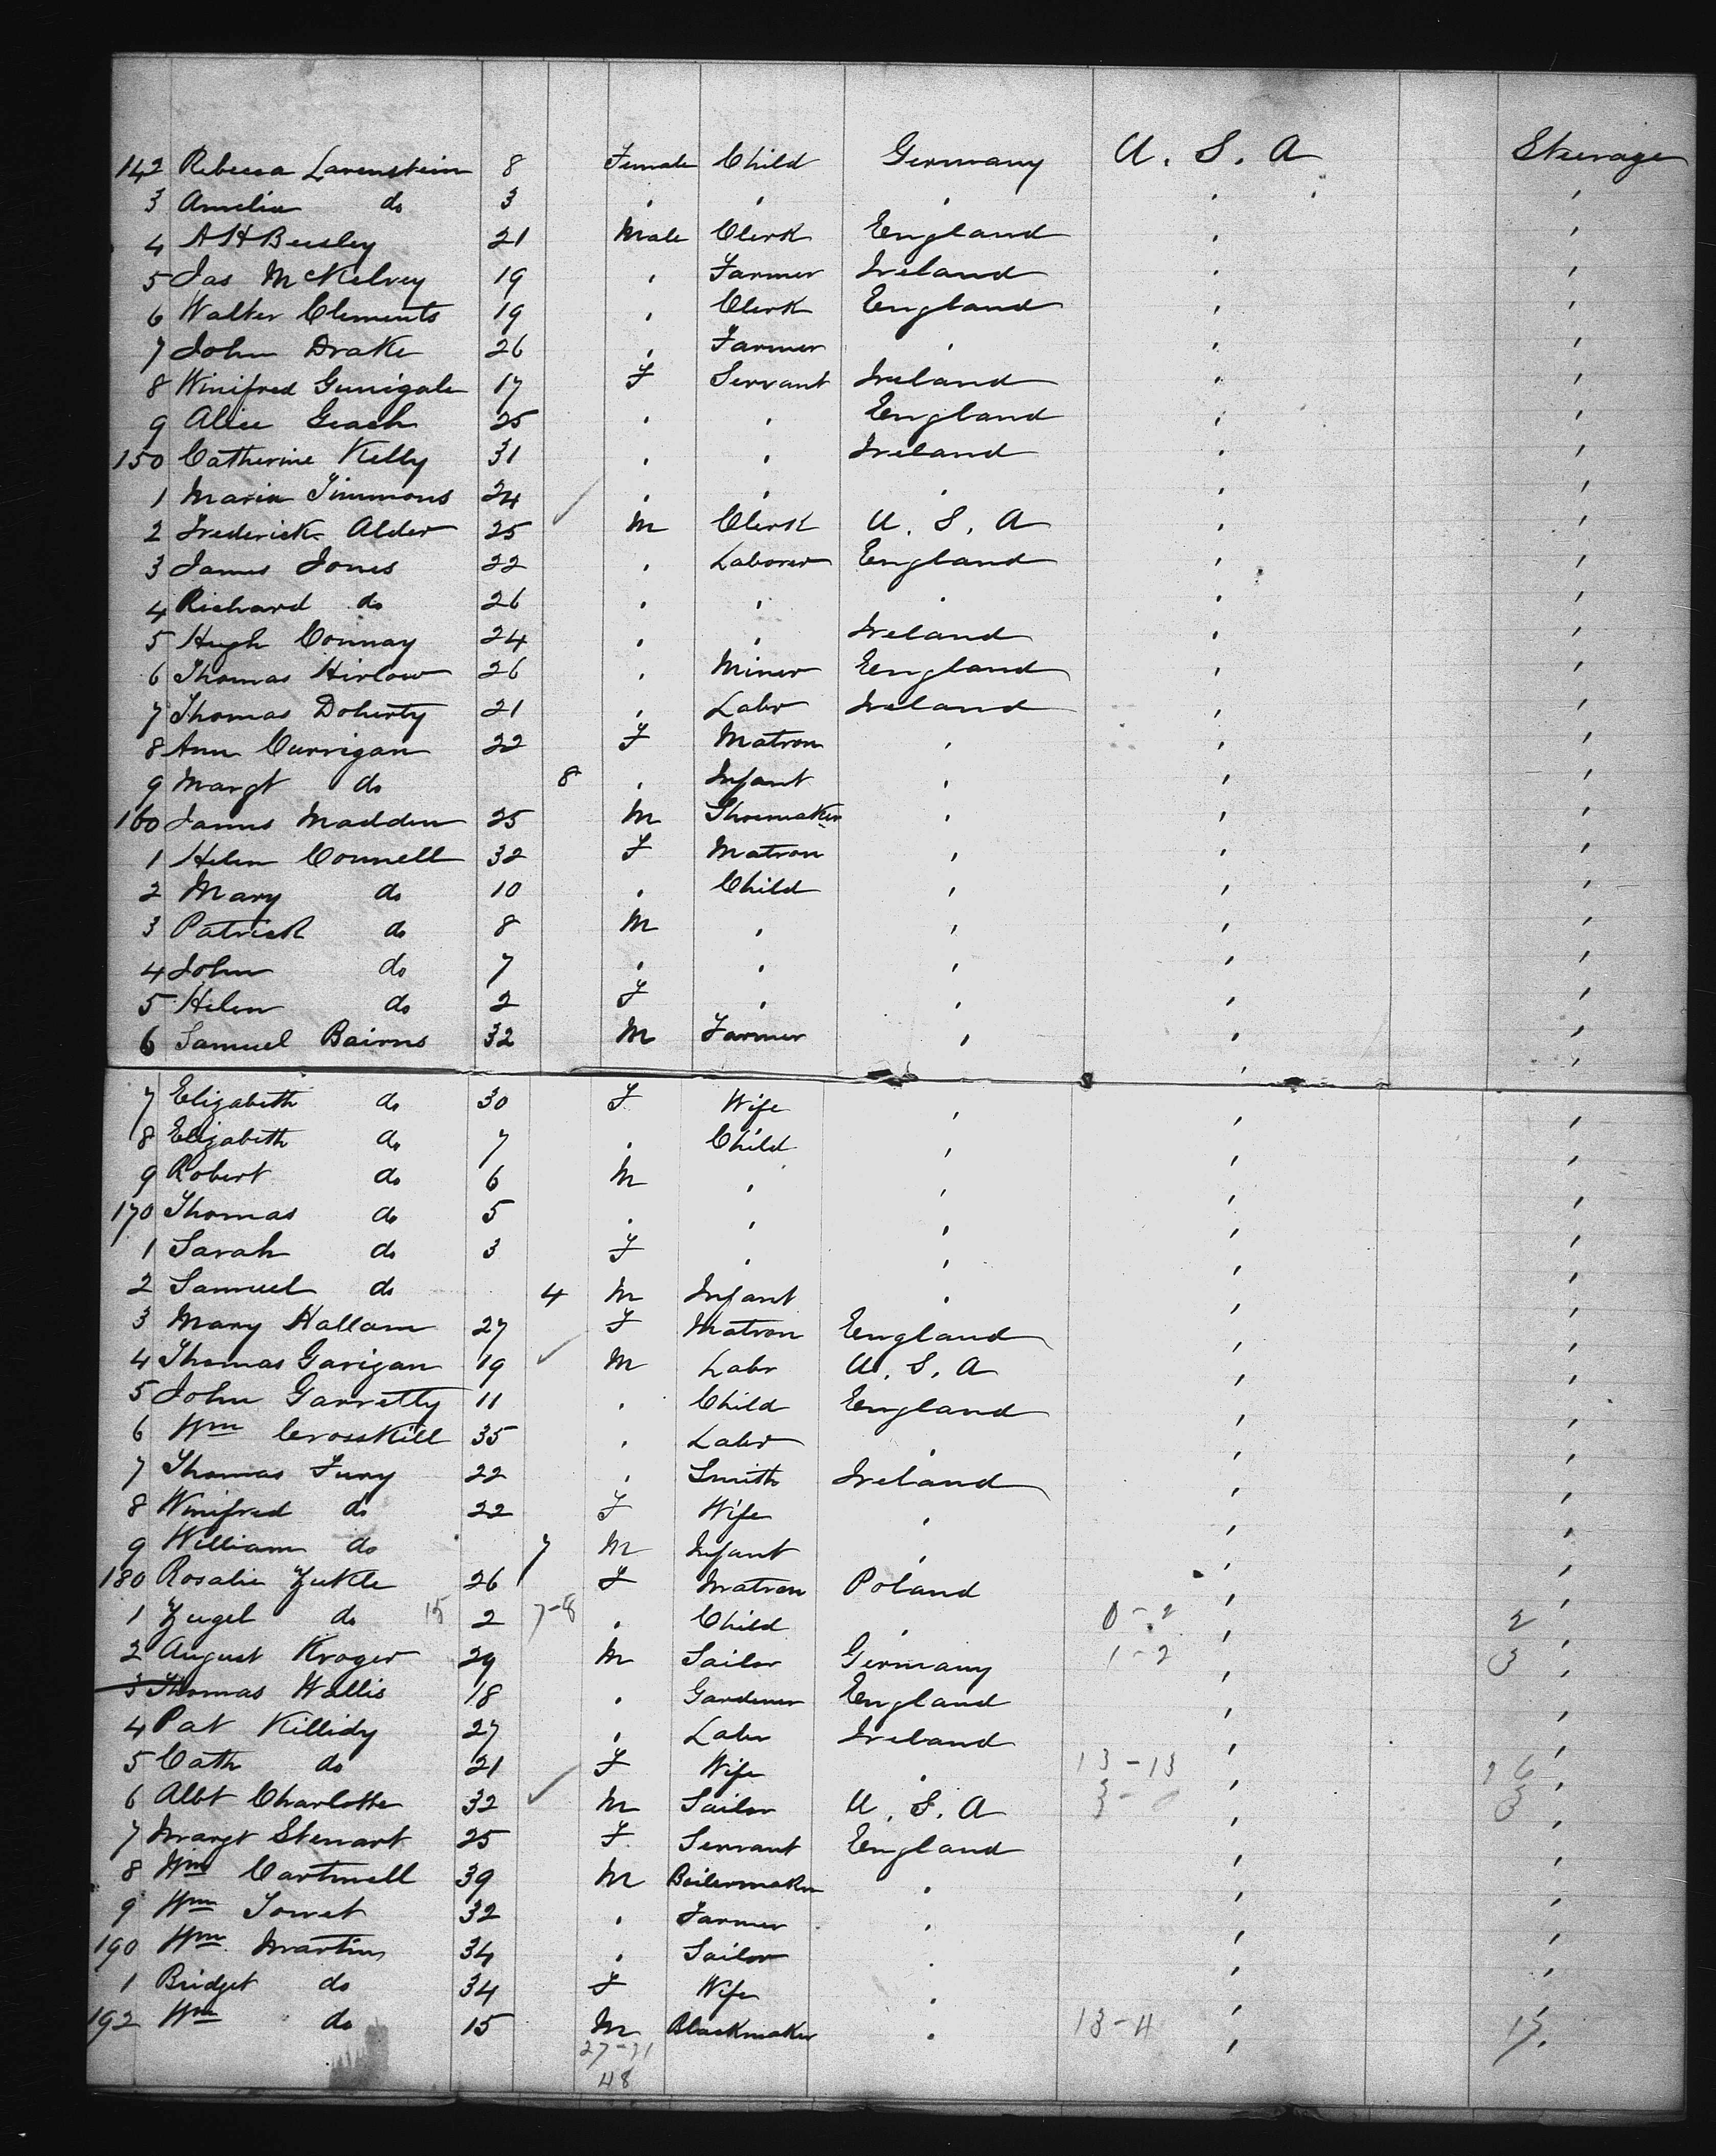 142 Rebecca Lavenstein 8 Female Child Germany U. S. A Steerage
3 Amelia do 3 " " " " "
4 A H Beesley 21 Male Clerk England " "
5 Jas McKelvey 19 " Farmer Ireland " "
6 Walter Clements 19 " Clerk England " "
7 John Drake 26 " Farmer " " "
8 Winifred Gunigale 17 F Servant Ireland " "
9 Alice Geach 25 " " England " "
150 Catherine Kelly 31 " " Ireland " "
1 Maria Timmons 24 " " " " "
2 Frederick Alder 25 ✓ M Clerk U. S. A " "
3 James Jones 22 " Laborer England " "
4 Richard do 26 " " " " "
5 Hugh Connay 24 " " Ireland " "
6 Thomas Hirlow 26 " Miner England " "
7 Thomas Doherty 21 " Labr Ireland " "
8 Ann Currigan 22 F Matron " " "
9 Margt do 8 " Infant " " "
160 James Madden 25 M Shoemaker " " "
1 Helen Connell 32 F Matron " " "
2 Mary do 10 " Child " " "
3 Patrick do 8 M " " " "
4 John do 7 " " " " "
5 Helen do 2 F " " " "
6 Samuel Bairns 32 M Farmer " " "
7 Elizabeth do 30 F Wife " " "
8 Elizabeth do 7 " Child " " "
9 Robert do 6 M " " " "
170 Thomas do 5 " " " " "
1 Sarah do 3 F " " " "
2 Samuel do 4 M Infant " " "
3 Mary Hallam 27 F Matron England " "
4 Thomas Garigan 19 ✓ M Labr U. S. A " "
5 John Garretty 11 " Child England " "
6 Wm Crosskill 35 " Labr " " "
7 Thomas Fury 22 " Smith Ireland " "
8 Winifred do 22 F Wife " " "
9 William do 7 M Infant " " "
180 Rosalie Zukle 26 F Matron Poland " "
1 Zugel do 15 2 7-8 " Child " 0-2 " 2 "
2 August Kroger 29 M Sailor Germany 1-2 " 3 "
3 Thomas Wallis 18 " Gardener England " "
4 Pat Killidy 27 " Labr Ireland " "
5 Cath do 21 F Wife " 13-13 " 26 "
6 Albt Charlotte 32 ✓ M Sailor U. S. A 3-0 " 3 "
7 Margt Stewart 25 F Servant England " "
8 Wm Cartmell 39 M Boilermaker " " "
9 Wm Sowet 32 " Farmer " " "
190 Wm Martin 34 " Sailor " " "
1 Bridget do 34 F Wife " " "
192 Wm do 15 M Blockmaker " 13-4 " 17 "
27-21
48